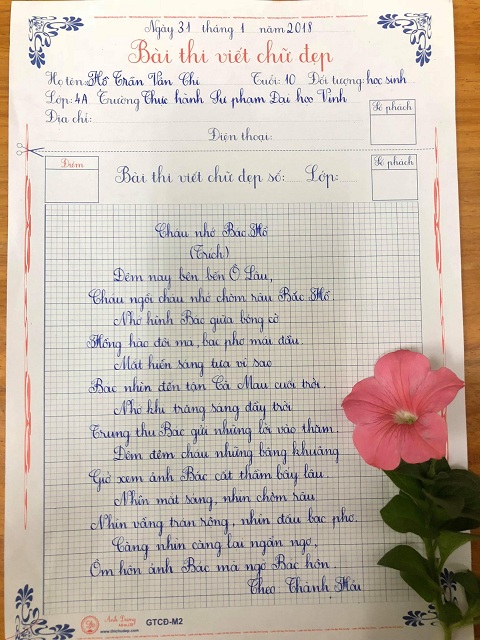 Ngày 31 tháng 1 năm 2018
Bài thi viết chữ đẹp
Họ tên: Hồ Trần Vân Chi Tuổi: 10 Đối tượng: học sinh
Lớp: 4A Trường Thực hành Sư phạm Đại học Vinh
Địa chỉ:
Điện thoại:
Số phách
Điểm
Bài thi viết chữ đẹp số: Lớp:
Số phách
Cháu nhớ Bác Hồ
(Trích)
Đêm nay bên bến Ô Lâu,
Cháu ngồi cháu nhớ chòm râu Bác Hồ
Nhớ hình Bác giữa bóng cờ
Hồng hào đôi má, bạc phơ mái đầu.
Mắt hiền sáng tựa vì sao
Bác nhìn đến tận Cà Mau cuối trời.
Nhớ khi trăng sáng đầy trời
Trung thu Bác gửi những lời vào thăm.
Đêm đêm cháu những bâng khuâng
Giở xem ảnh Bác cất thầm bấy lâu.
Nhìn mắt sáng, nhìn chòm râu
Nhìn vầng trán rộng, nhìn đầu bạc phơ.
Càng nhìn càng lại ngẩn ngơ,
Ôm hôn ảnh Bác mà ngỡ Bác hôn.
Theo Thanh Hải
Ánh Dương
GTCĐ-M2